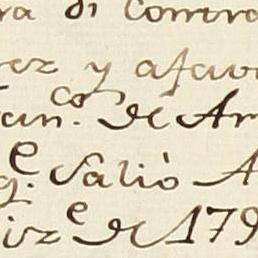 ra di contra
rez y afavo
an.co de Ar
q.e Saliò A
izᵉ de 179